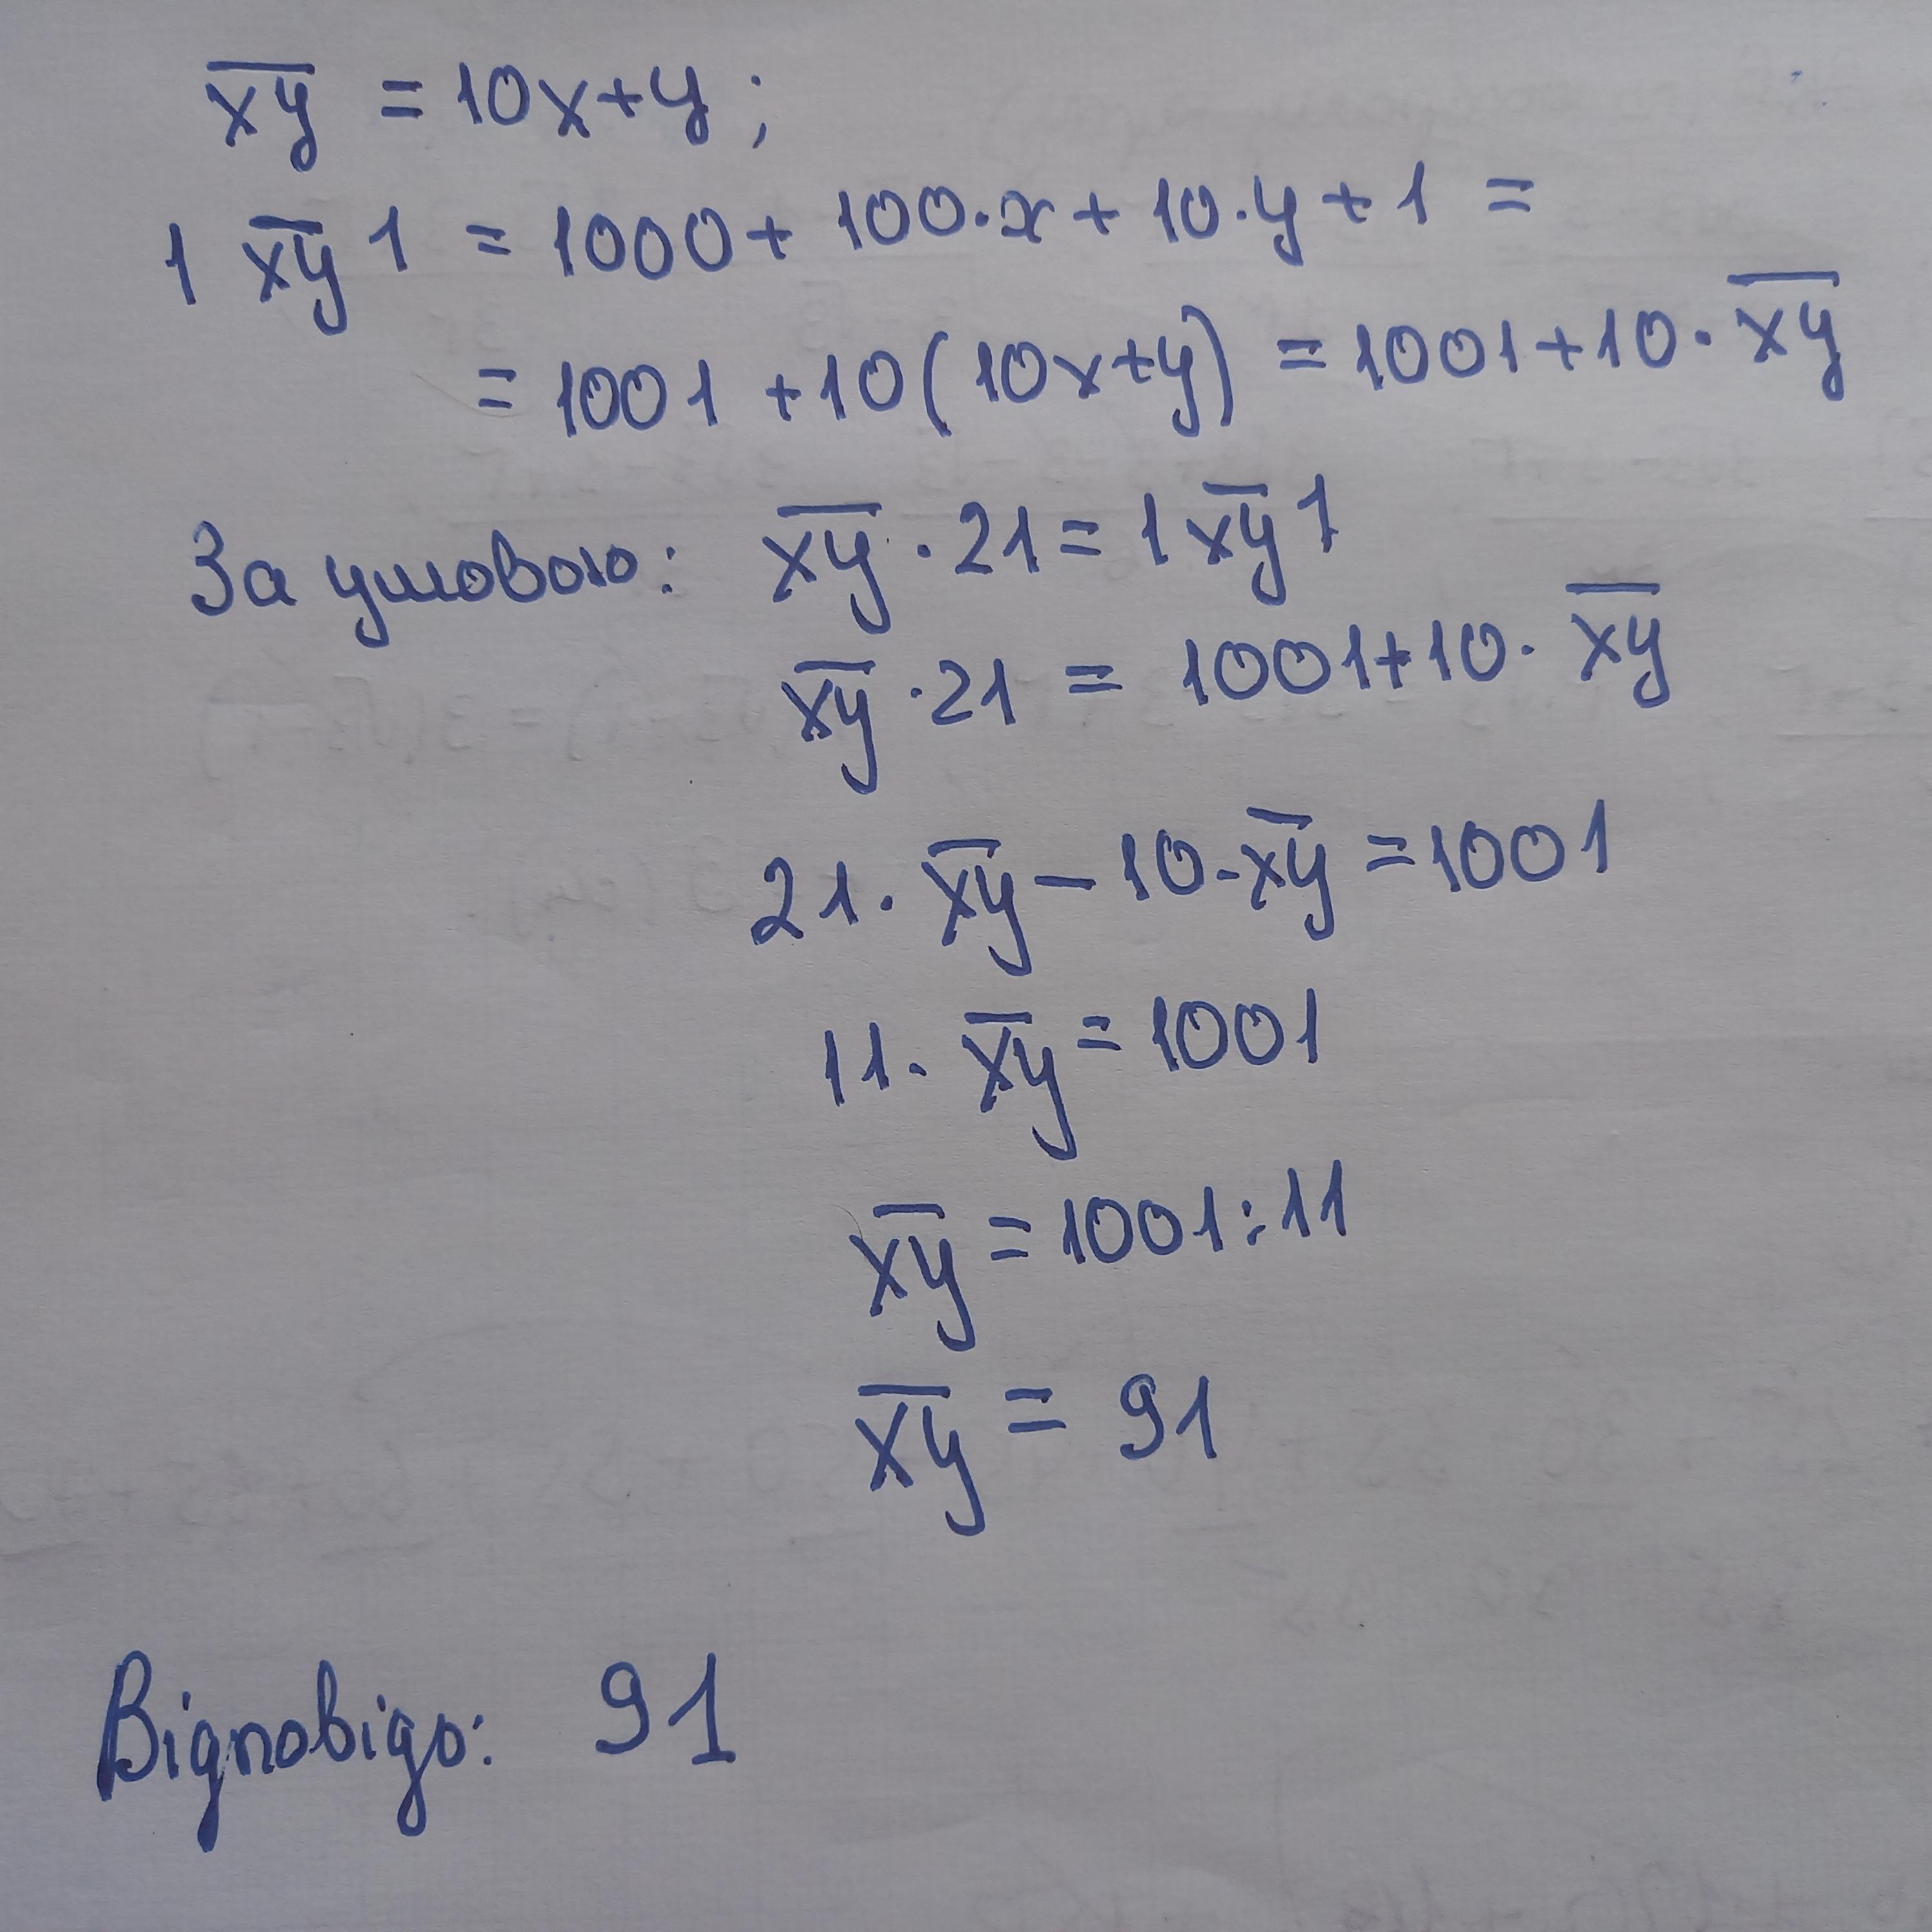 x̅y̅ = 10x+y;
1 x̅y̅ 1 = 1000 + 100·x + 10·y + 1 =
= 1001 + 10(10x+y) = 1001+10·x̅y̅
За умовою: x̅y̅·21 = 1x̅y̅1
x̅y̅·21 = 1001+10·x̅y̅
21·x̅y̅ - 10·x̅y̅ = 1001
11·x̅y̅ = 1001
x̅y̅ = 1001:11
x̅y̅ = 91
Відповідь: 91